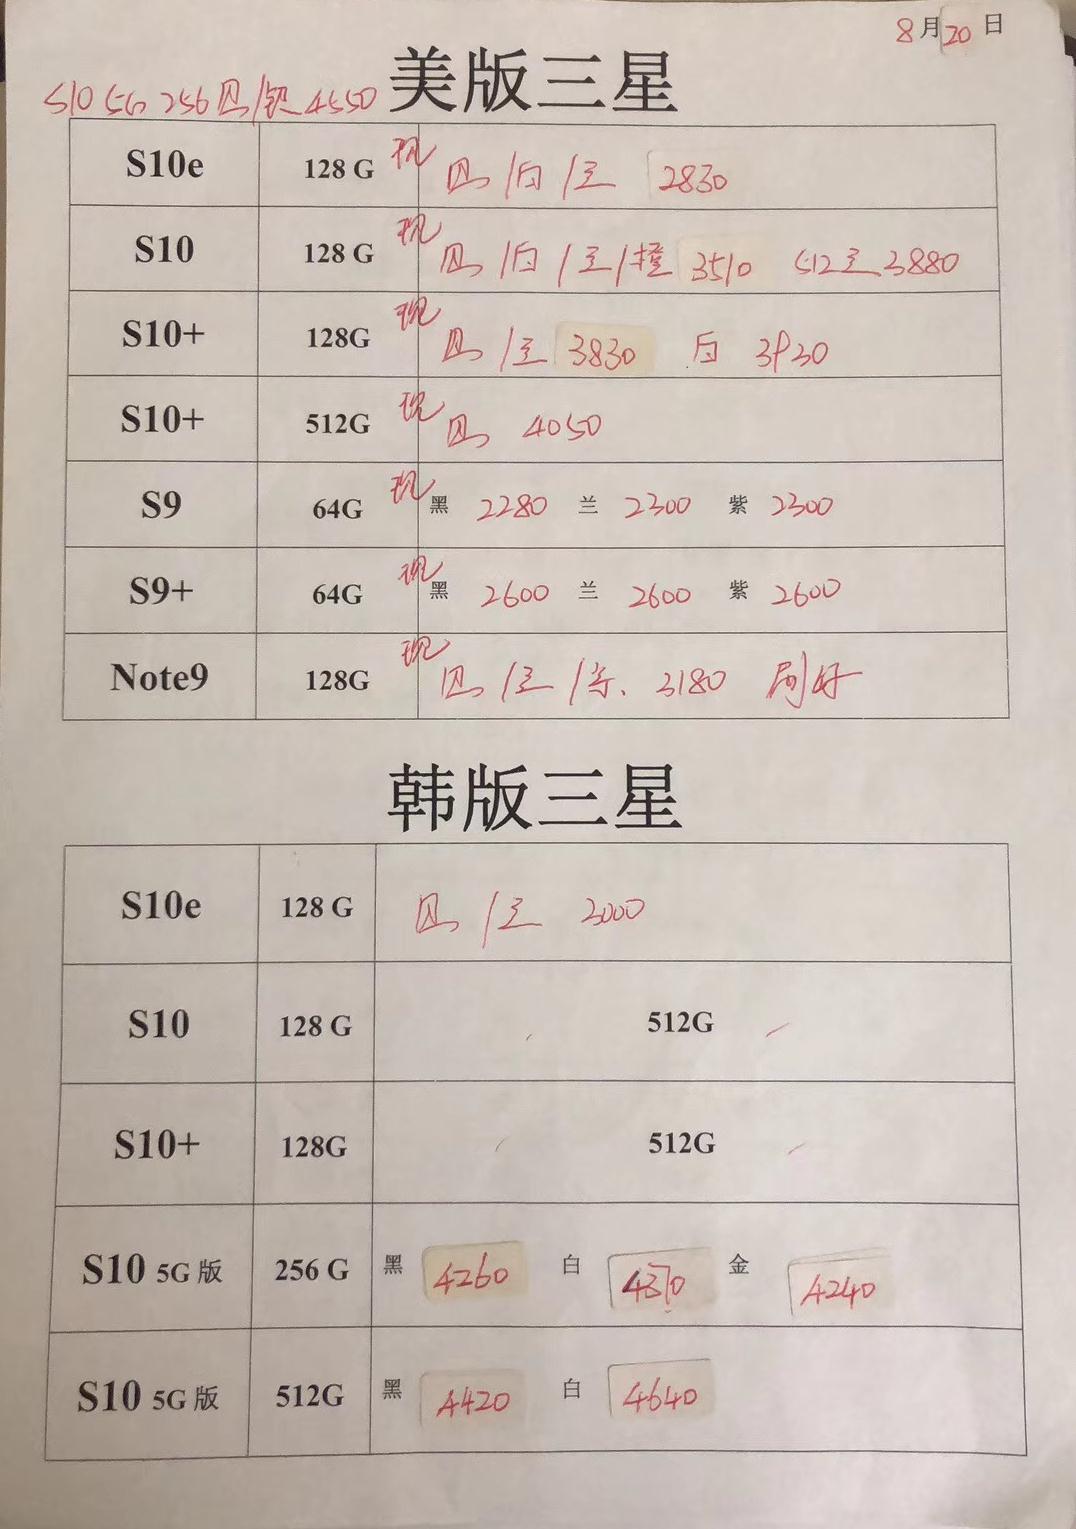 8月20日
S10 5G 256 黑/银 4550 美版三星
S10e 128 G 现 黑/白/兰 2830
S10 128 G 现 黑/白/兰/橙 3510 512兰 3880
S10+ 128G 现 黑/兰 3830 白 3930
S10+ 512G 现 黑 4050
S9 64G 现 黑 2280 兰 2300 紫 2300
S9+ 64G 现 黑 2600 兰 2600 紫 2600
Note9 128G 现 黑/兰/紫 3180 刷好
韩版三星
S10e 128 G 黑/兰 3000
S10 128 G 512G
S10+ 128G 512G
S10 5G 版 256 G 黑 4260 白 4370 金 4240
S10 5G 版 512G 黑 4420 白 4640